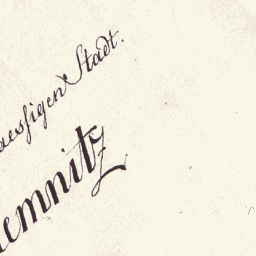 aessigen Stadt.
emnitz